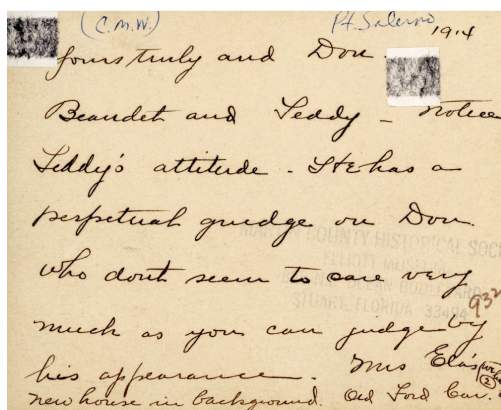 (C.M.W.) Pt. Salerno 1914
Yours truly and Don.
Beaudet and Teddy - notice
Teddy's attitude. He has a
perpetual grudge on Don
who dont seem to care very
much as you can judge by
his appearance. Mrs
new house in background. Old Ford Car.
MARTIN COUNTY HISTORICAL SOC
ELLIOTT MUSEUM
OCEAN BOULEVARD
STUART, FLORIDA 33494
932
②